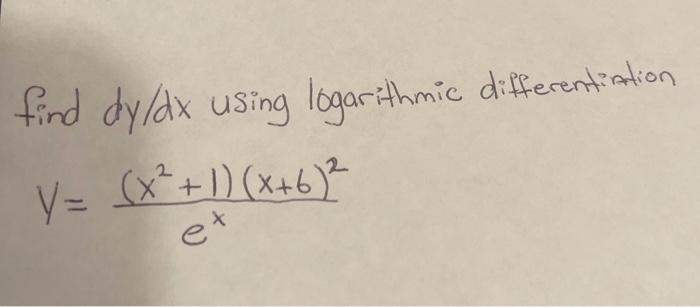 find dy/dx using logarithmic differentiation
y = (x² + 1)(x+6)² / eˣ